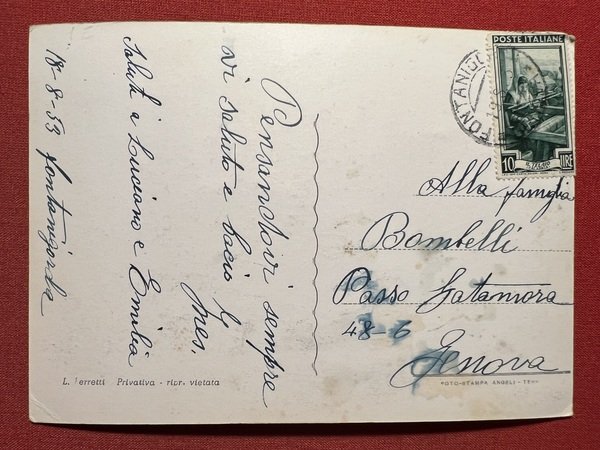 Pensandovi sempre
vi saluto e bacio
Ines.
Saluti a Luciano e Emilia
18-8-53 fontanigorda
POSTE ITALIANE
10 LIRE
FONTANIGO
Alla famiglia
Bombelli
Passo Gatamora
48-6
Genova
L. Ferretti Privativa - ripr. vietata
FOTO-STAMPA ANGELI - TERNI